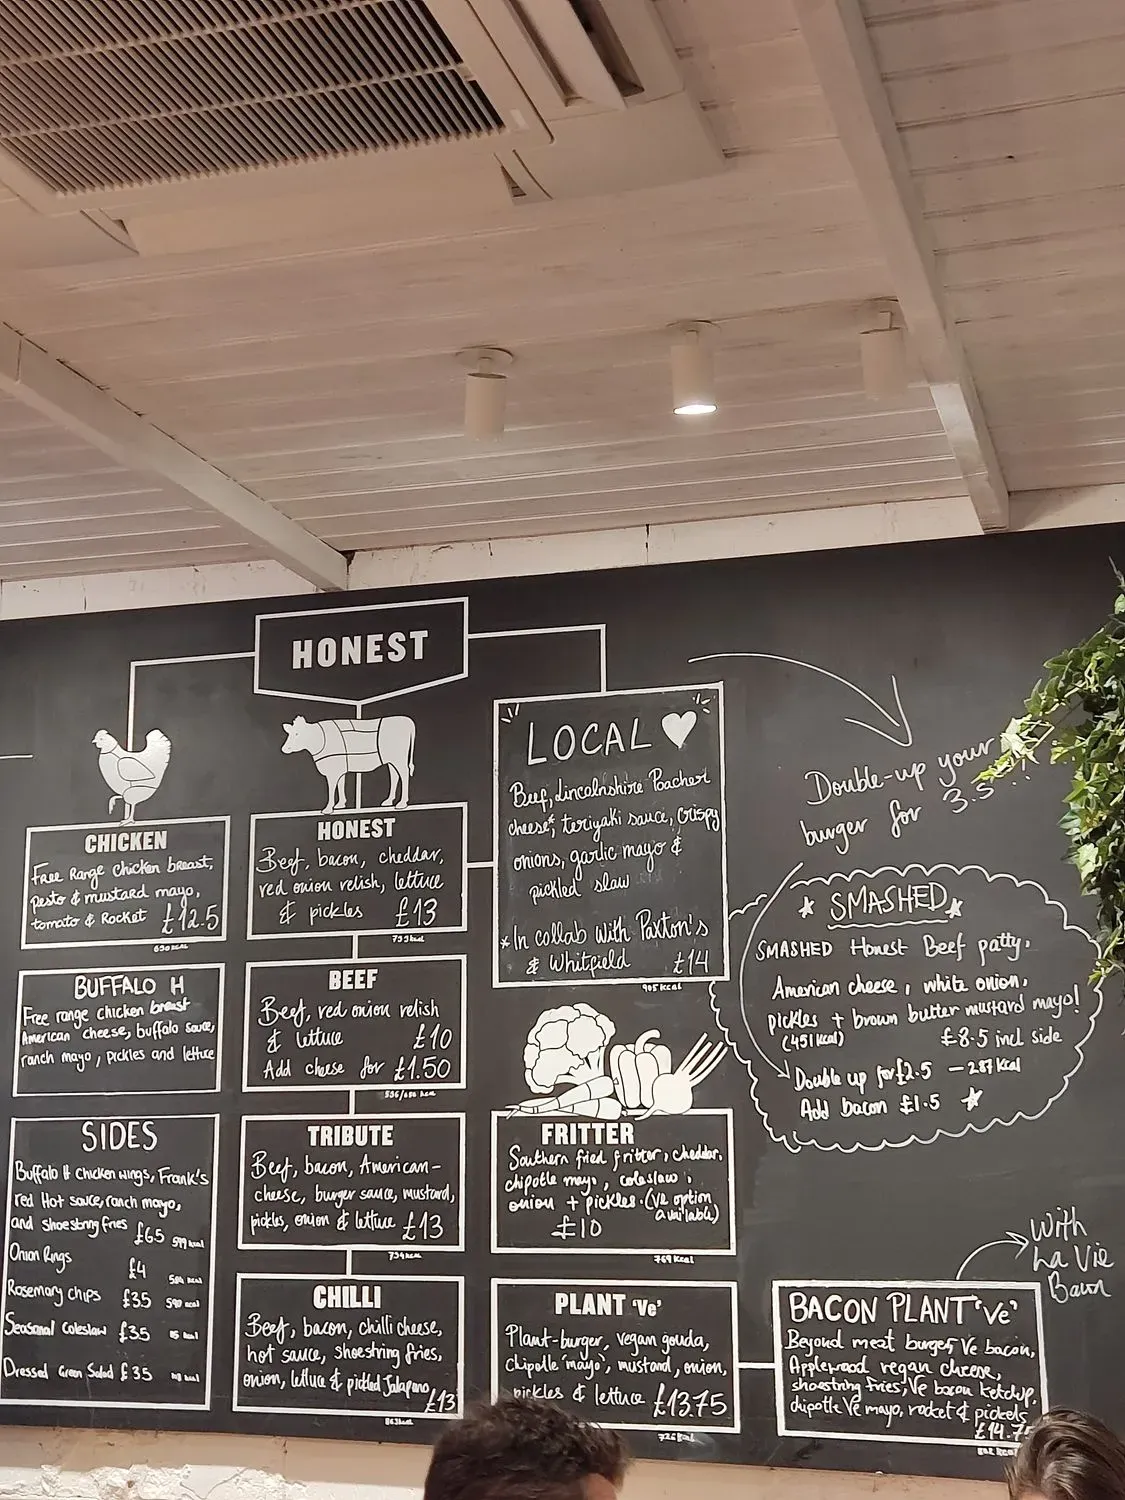 HONEST
CHICKEN
Free Range chicken breast,
pesto & mustard mayo,
tomato & Rocket £12.5
690 kcal
BUFFALO H
Free range chicken breast
American cheese, buffalo sauce,
ranch mayo, pickles and lettuce
SIDES
Buffalo H Chicken wings, Frank's
red Hot sauce, ranch mayo,
and shoestring fries £6.5 599 kcal
Onion Rings £4 584 kcal
Rosemary chips £3.5 590 kcal
Seasonal Coleslaw £3.5 kcal
Dressed Green Salad £3.5 kcal
HONEST
Beef, bacon, cheddar,
red onion relish, lettuce
& pickles £13
799 kcal
BEEF
Beef, red onion relish
& lettuce £10
Add cheese for £1.50
kcal
TRIBUTE
Beef, bacon, American-
cheese, burger sauce, mustard,
pickles, onion & lettuce £13
734 kcal
CHILLI
Beef, bacon, chilli cheese,
hot sauce, shoestring fries,
onion, lettuce & pickled Jalapeno
£13
863 kcal
LOCAL
Beef, Lincolnshire Poacher
cheese*, teriyaki sauce, crispy
onions, garlic mayo &
pickled slaw
*In collab with Paxton's
& Whitfield £14
905 kcal
FRITTER
Southern fried fritter, cheddar,
chipotle mayo, coleslaw,
onion + pickles. (Ve option
available)
£10
769 kcal
PLANT 've'
Plant-burger, vegan gouda,
chipotle 'mayo', mustard, onion,
pickles & lettuce £13.75
726 kcal
Double-up your
burger for 3.5
SMASHED
SMASHED Honest Beef patty,
American cheese, white onion,
pickles + brown butter mustard mayo!
(451 kcal) £8.5 incl side
Double up for £2.5 - 287 kcal
Add bacon £1.5
With
La Vie
Bacon
BACON PLANT 've'
Beyond meat burger, Ve bacon,
Applewood vegan cheese,
shoestring fries, Ve bacon ketchup,
chipotle Ve mayo, rocket & pickels
£14.75
kcal